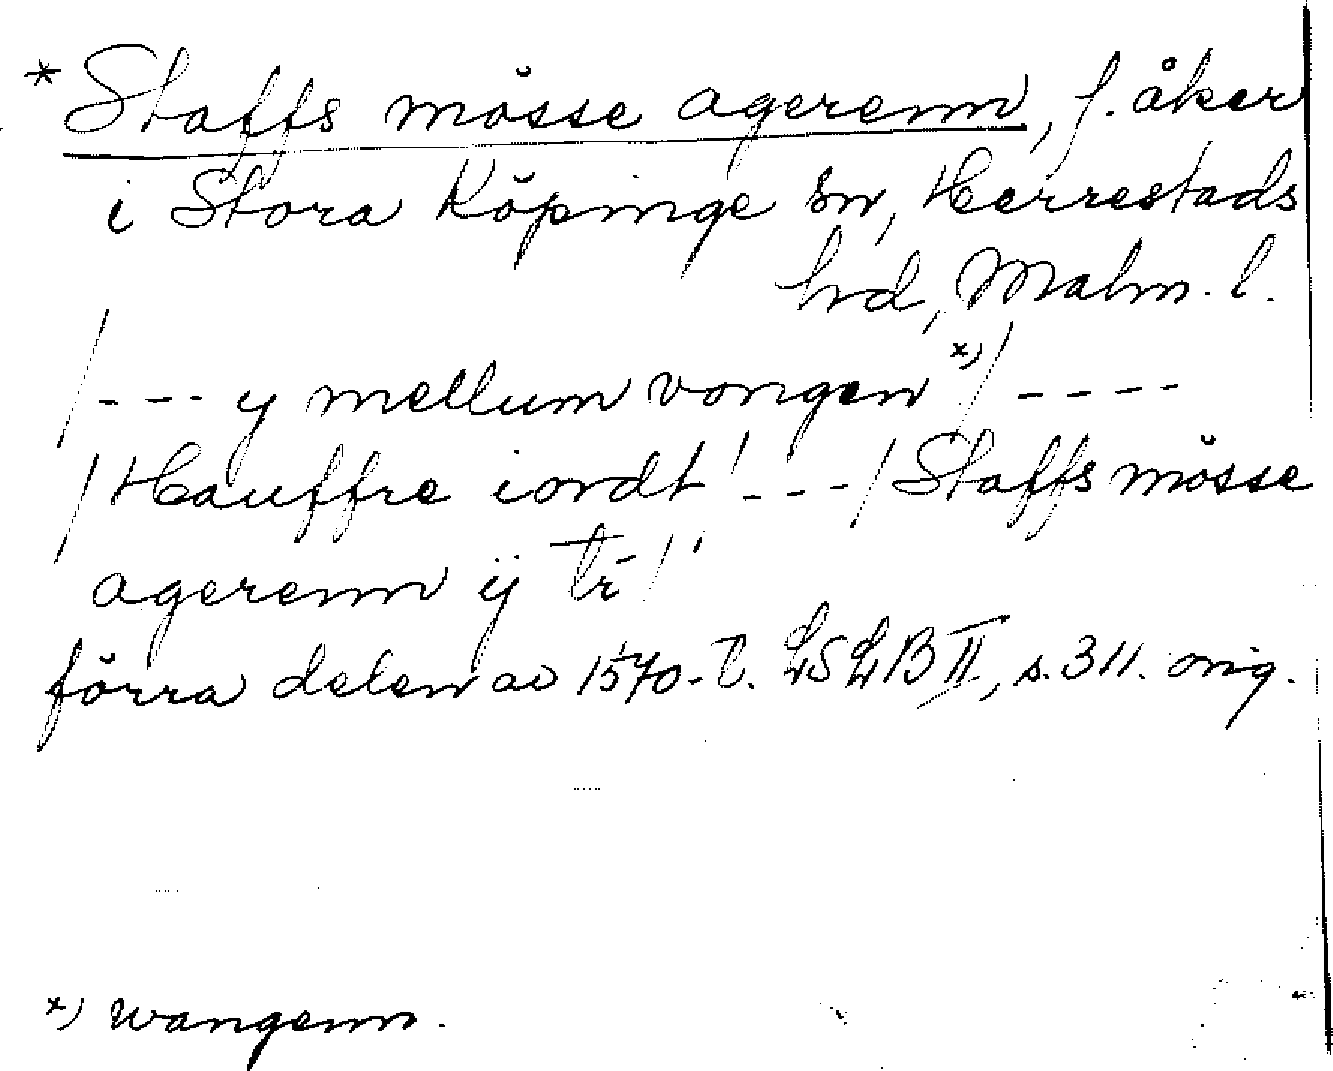 * Staffs mösse agerenn, f. åker
i Stora Köpinge sn, Herrestads
hrd, Malm. l.
/--- y mellum vongen x) / ----
/ Hauffre iordt ! --- / Staffs mösse
agerenn ÿ tr̄ / '
förra delen av 1570-t. LSLB II, s. 311. orig.
x) wangenn.